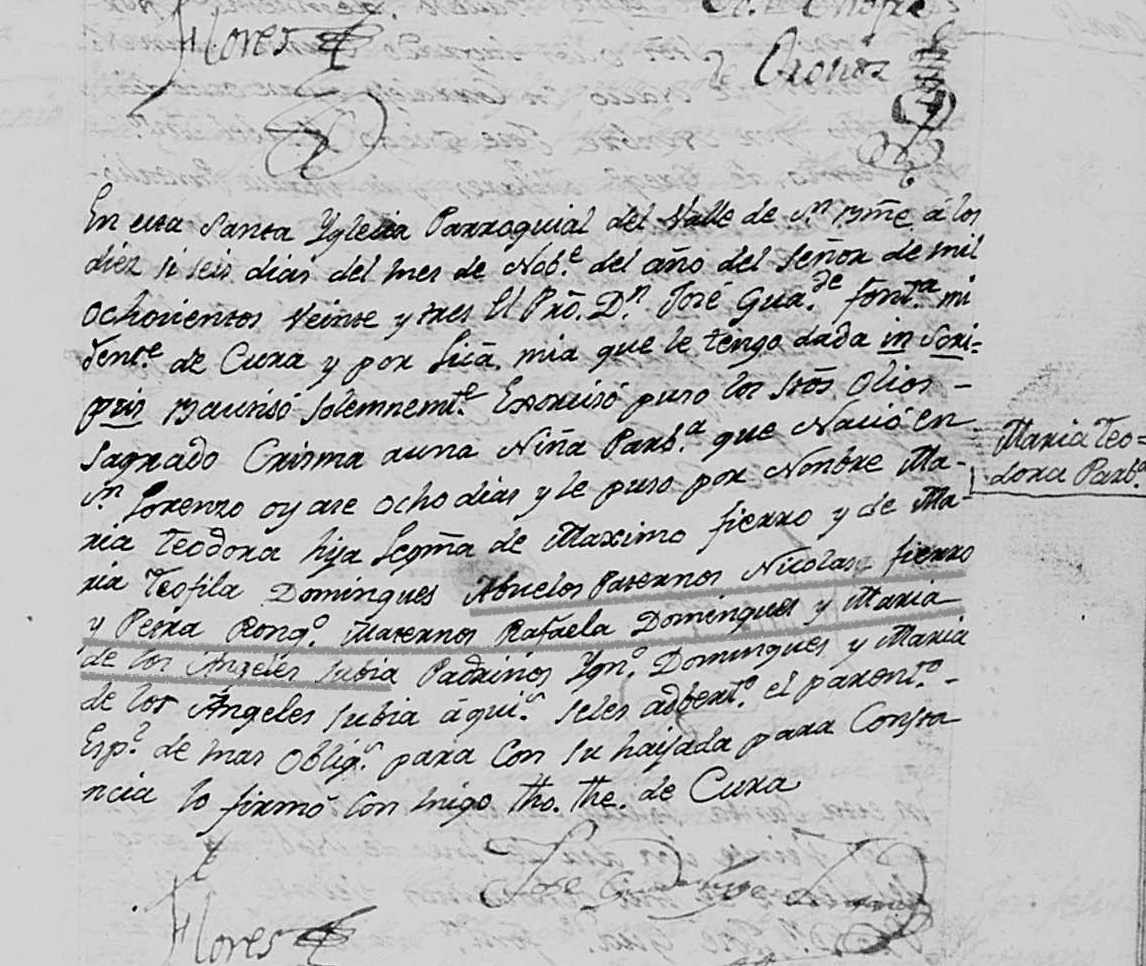 Flores
de Oronoz
En esta Santa Yglesia Parroquial del Valle de Sn. Bme á los
diez i seis dias del mes de Nobe. del año del Señor de mil
ochocientos Veinte y tres El Pro. Dn. José Gua. de Fonta. mi
Tente. de Cura y por Lica. mia que le tengo dada in Scri=
ptis Baurisó solemnemte. Exorcisó puso los Stos Olios -
Sagrado Crisma a una Niña Parba. que Nació en
Sn Lorenzo oy ase ocho dias y le puso por Nonbre Ma-
ria Teodora hija Legma de Maximo fierro y de Ma
ria Teofila Domingues Abuelos Paternos Nicolas fierro
y Petra Ronqo. Maternos Rafaela Domingues y Maria
de los Angeles Subia Padrinos Ygno. Domingues y Maria
de los Angeles Subia á quis. seles adbertó. el parento. -
Espl. de mas obligs. para con su haijada para Consta
ncia lo firmó con migo Tho. The. de Cura
Maria Teo=
dora Parba.
Flores
José